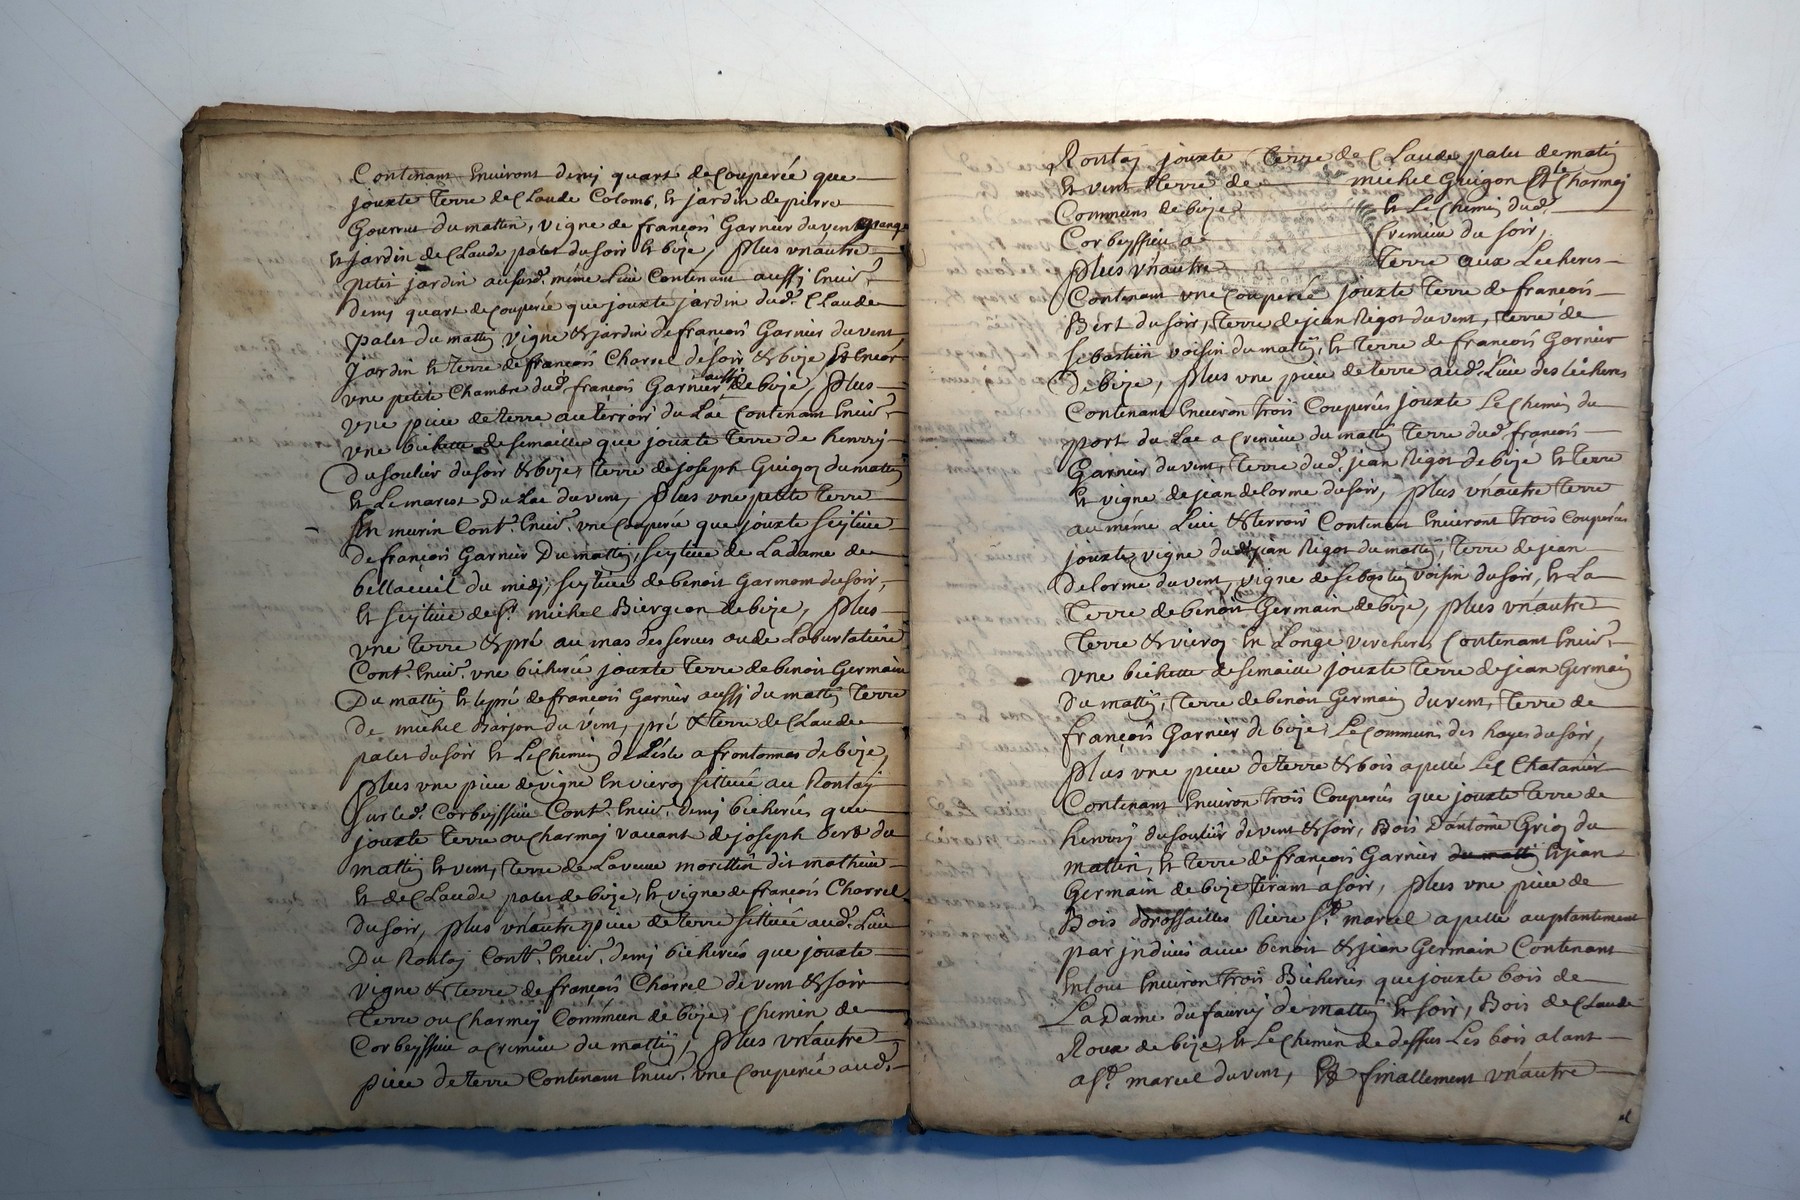 Contenant Environt demy quart de Couperée que
jouxte Terre de Claude Colomb, et jardin de pierre
du mattin, vigne de françois Garnier du vent grange
et jardin de Claude patet du soir et bize, plus vn autre
petit jardin aususd. même Lieu Contenant aussy Envir.
demy quart de couperée que jouxte jardin dud. Claude
patet du mattin vigne & jardin de françois Garnier du vent
jardin et terre de françois Charrel de soir & bize, et encor
vne petite Chambre dud. françois Garnier aussy de bize, Plus
vne piece de terre au terroir du Lac Contenant Envir.
vne bichette de semaille que jouxte Terre de henrry
Dusoulier du soir & bize, terre de joseph Guigoz du mattin
et Le marest Du Lac du vent, plus vne petite Terre
En murin Cont. Envir. vne couperée que jouxte seytiue
de françois Garnier Du mattin, seytiue de La dame de
bellacueil du midy, seytiue de benoit Garmom du soir,
et seytiue de Sr. michel Biergeon de bize, plus
vne terre & pré au mas des serues ou de La burlatiere
Cont. Envir. vne bicherée jouxte Terre de benoit Germain
Du mattin et le pré de françois Garnier aussy du mattin Terre
de michel Barjon du vent, pré & terre de Claude
patet du soir et Le Chemin de L'isle a frontonnas de bize,
plus vne piece de vigne En vieroy sittuée au Rontay
sur led. Corbeyssieu Cont. Envir. demy bicherée que
jouxte Terre ou Charmey vaccant de joseph du
mattin et vent, terre de La veuue morettin dit mathieu
et de Claude patet de bize, et vigne de françois Charrel
du soir, plus vn autre piece de terre sittuée aud. Lieu
Du Rontay Cont. Envir. demy bicherées que jouxte
vigne & terre de françois Charrel de vent & soir
Terre ou Charmey Commun de bize, Chemin de
Corbeyssieu a cremieu du mattin, plus vn autre
piece de terre Contenant Envir. vne Couperée aud.
Rontay jouxte Terre de Claude patet de matin
et vent Terre de michel Guigon et le Charmey
Communs de bize et Le Chemin dud.
Corbeyssieu a Cremieu du soir,
plus vn autre Terre aux Lecheres
Contenant vne couperée jouxte Terre de françois
Bert du soir, terre de jean Rigot du vent, terre de
sebastien voisin du mattin, et terre de françois Garnier
de bize, plus vne piece de terre aud. Lieu des lecheres
Contenant Environ trois Couperées jouxte Le Chemin du
port du Lac a Cremieu du mattin Terre dud. françois
Garnier du vent, terre dud. jean Rigot de bize et terre
et vigne de jean delorme du soir, plus vn autre terre
au même Lieu & terroir Contenant Environt trois couperées
jouxte vigne dud. jean Rigot du mattin, Terre de jean
Delorme du vent, vigne de sebastien voisin du soir, et La
Terre de benoit Germain de bize, plus vn autre
Terre & vieroy En Longe vercheres Contenant Envir.
vne bichette de semaille jouxte Terre de jean Germain
du mattin, terre de benoit Germain du vent, terre de
françois Garnier de bize, Le Communs des hayes du soir,
plus vne piece de terre & bois apellé Les Chatanier
Contenant Environ trois Couperées que jouxte Terre de
henrry dusoulier de vent & soir, Bois d'antoine du
mattin, et Terre de françois Garnier du mattin et jean
Germain de bize tirant a soir, plus vne piece de
Bois Riere St. marcel apellé au plantement
par jndivis avec benoit & jean Germain Contenant
En tout Environ trois Bicherées que jouxte bois de
La Dame du faurey de mattin & soir, Bois de Claude
Roux de bize, et Le Chemin de dessus Les bois alant
a St. marcel du vent, Et finallement vn autre